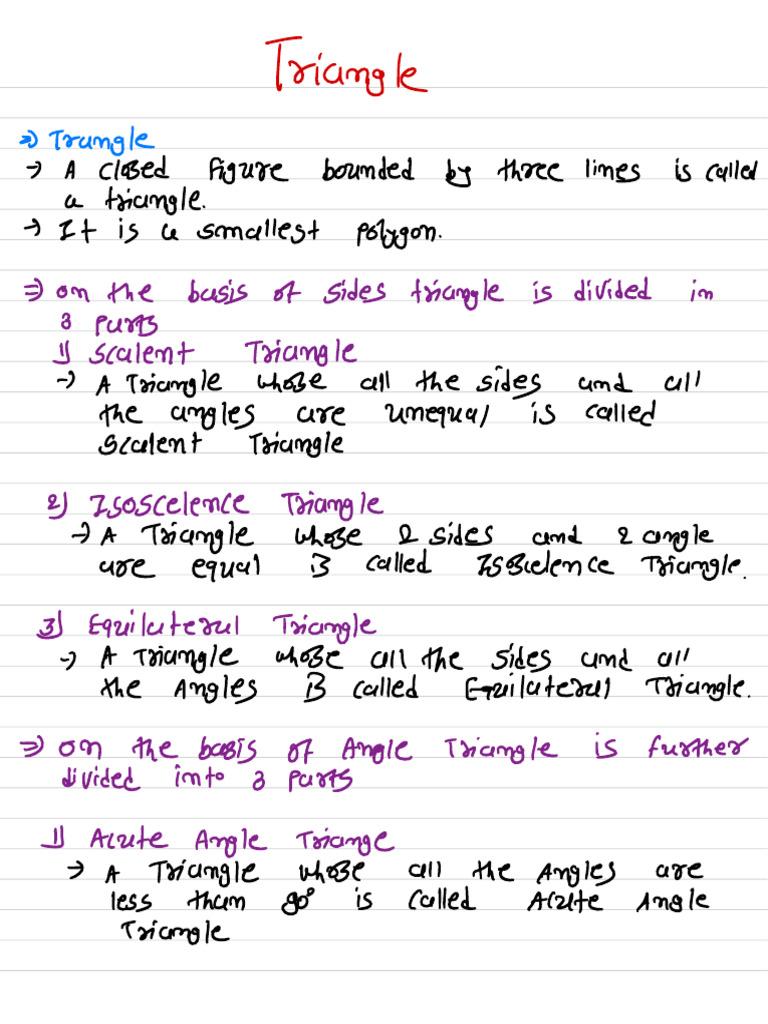 Triangle
⇒ Trangle
→ A closed figure bounded by three lines is called
a triangle.
→ It is a smallest polygon.
⇒ on the basis of sides triangle is divided in
3 parts
1) Scalent Triangle
→ A Triangle whose all the sides and all
the angles are unequal is called
Scalent Triangle
2) Isoscelence Triangle
→ A Triangle whose 2 sides and 2 angle
are equal is called Isoscelence Triangle.
3) Equilateral Triangle
→ A Triangle whose all the sides and all
the Angles is called Equilateral Triangle.
⇒ on the basis of Angle Triangle is further
divided into 3 parts
1) Acute Angle Triange
→ A Triangle whose all the Angles are
less than 90° is called Acute Angle
Triangle